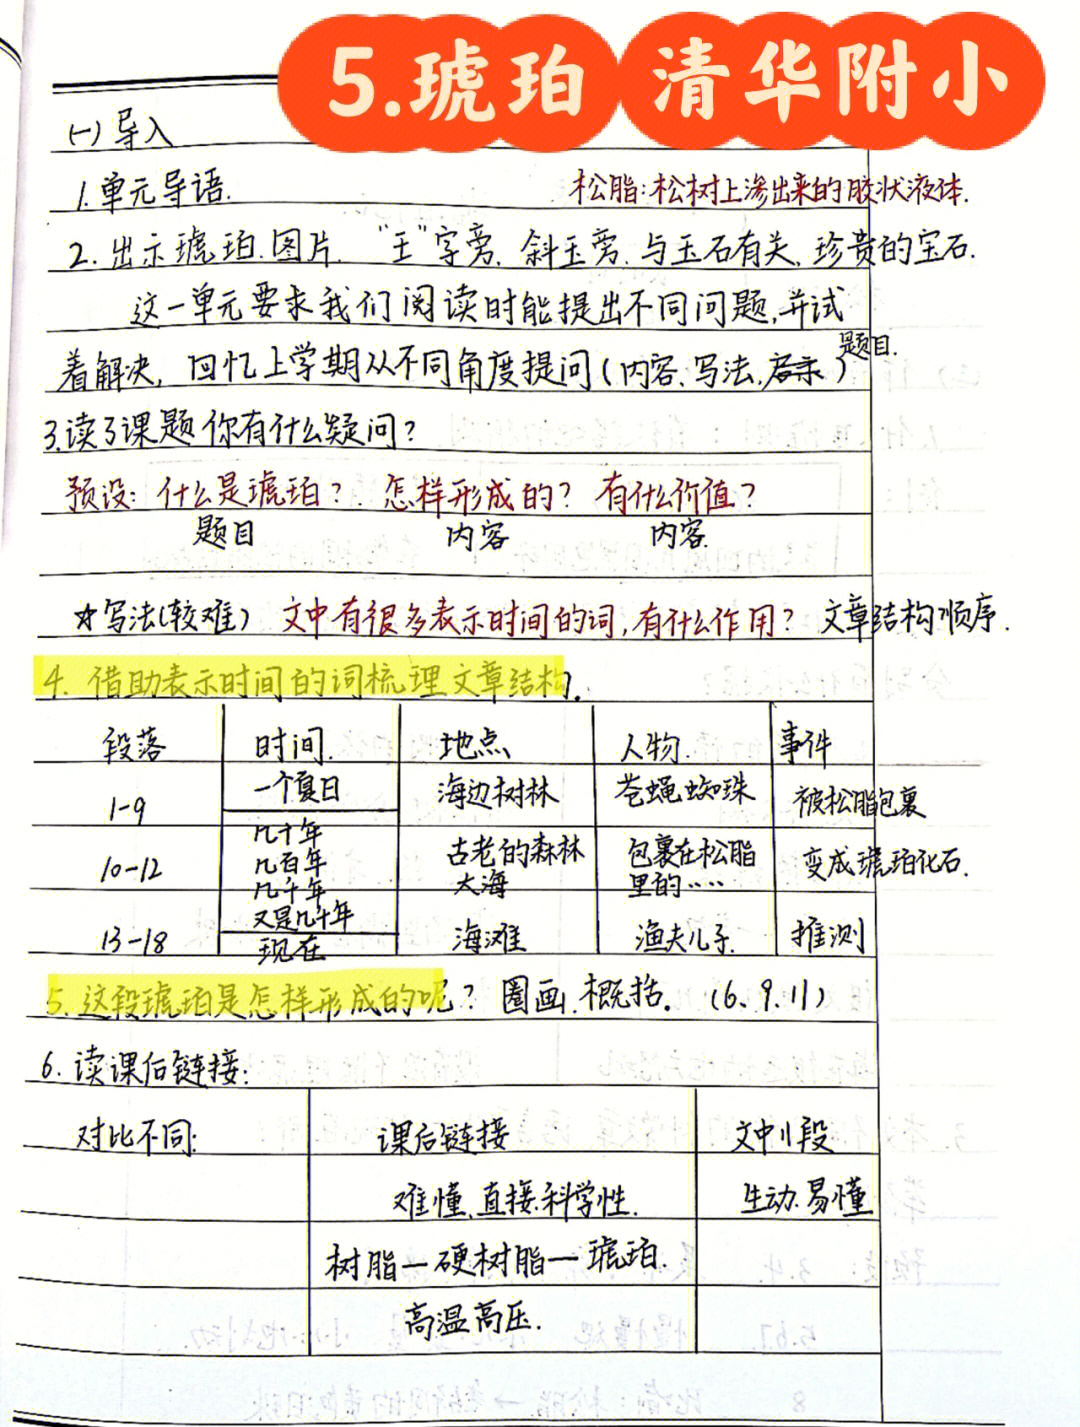 5.琥珀 清华附小
(一)导入
1.单元导语. 松脂:松树上渗出来的胶状液体.
2.出示琥珀.图片. "王"字旁.斜玉旁.与玉石有关,珍贵的宝石.
这一单元要求我们阅读时能提出不同问题,并试
着解决, 回忆上学期从不同角度提问(内容、写法,启示) 题目.
3.读了课题你有什么疑问?
预设: 什么是琥珀? 怎样形成的? 有什么价值?
题目 内容 内容
☆写法(较难) 文中有很多表示时间的词,有什么作用? 文章结构顺序.
4. 借助表示时间的词梳理文章结构.
段落 时间. 地点 人物. 事件
1-9 一个夏日 海边树林 苍蝇蜘蛛 被松脂包裹
10-12 几十年 古老的森林 包裹在松脂 变成琥珀化石.
几百年 大海 里的……
几千年
又是几千年
13-18 现在 海滩 渔夫儿子. 推测
5.这段琥珀是怎样形成的呢? 圈画、概括。(6、9、11)
6.读课后链接:
对比不同: 课后链接 文中11段
难懂、直接.科学性. 生动.易懂
树脂—硬树脂—琥珀.
高温高压.